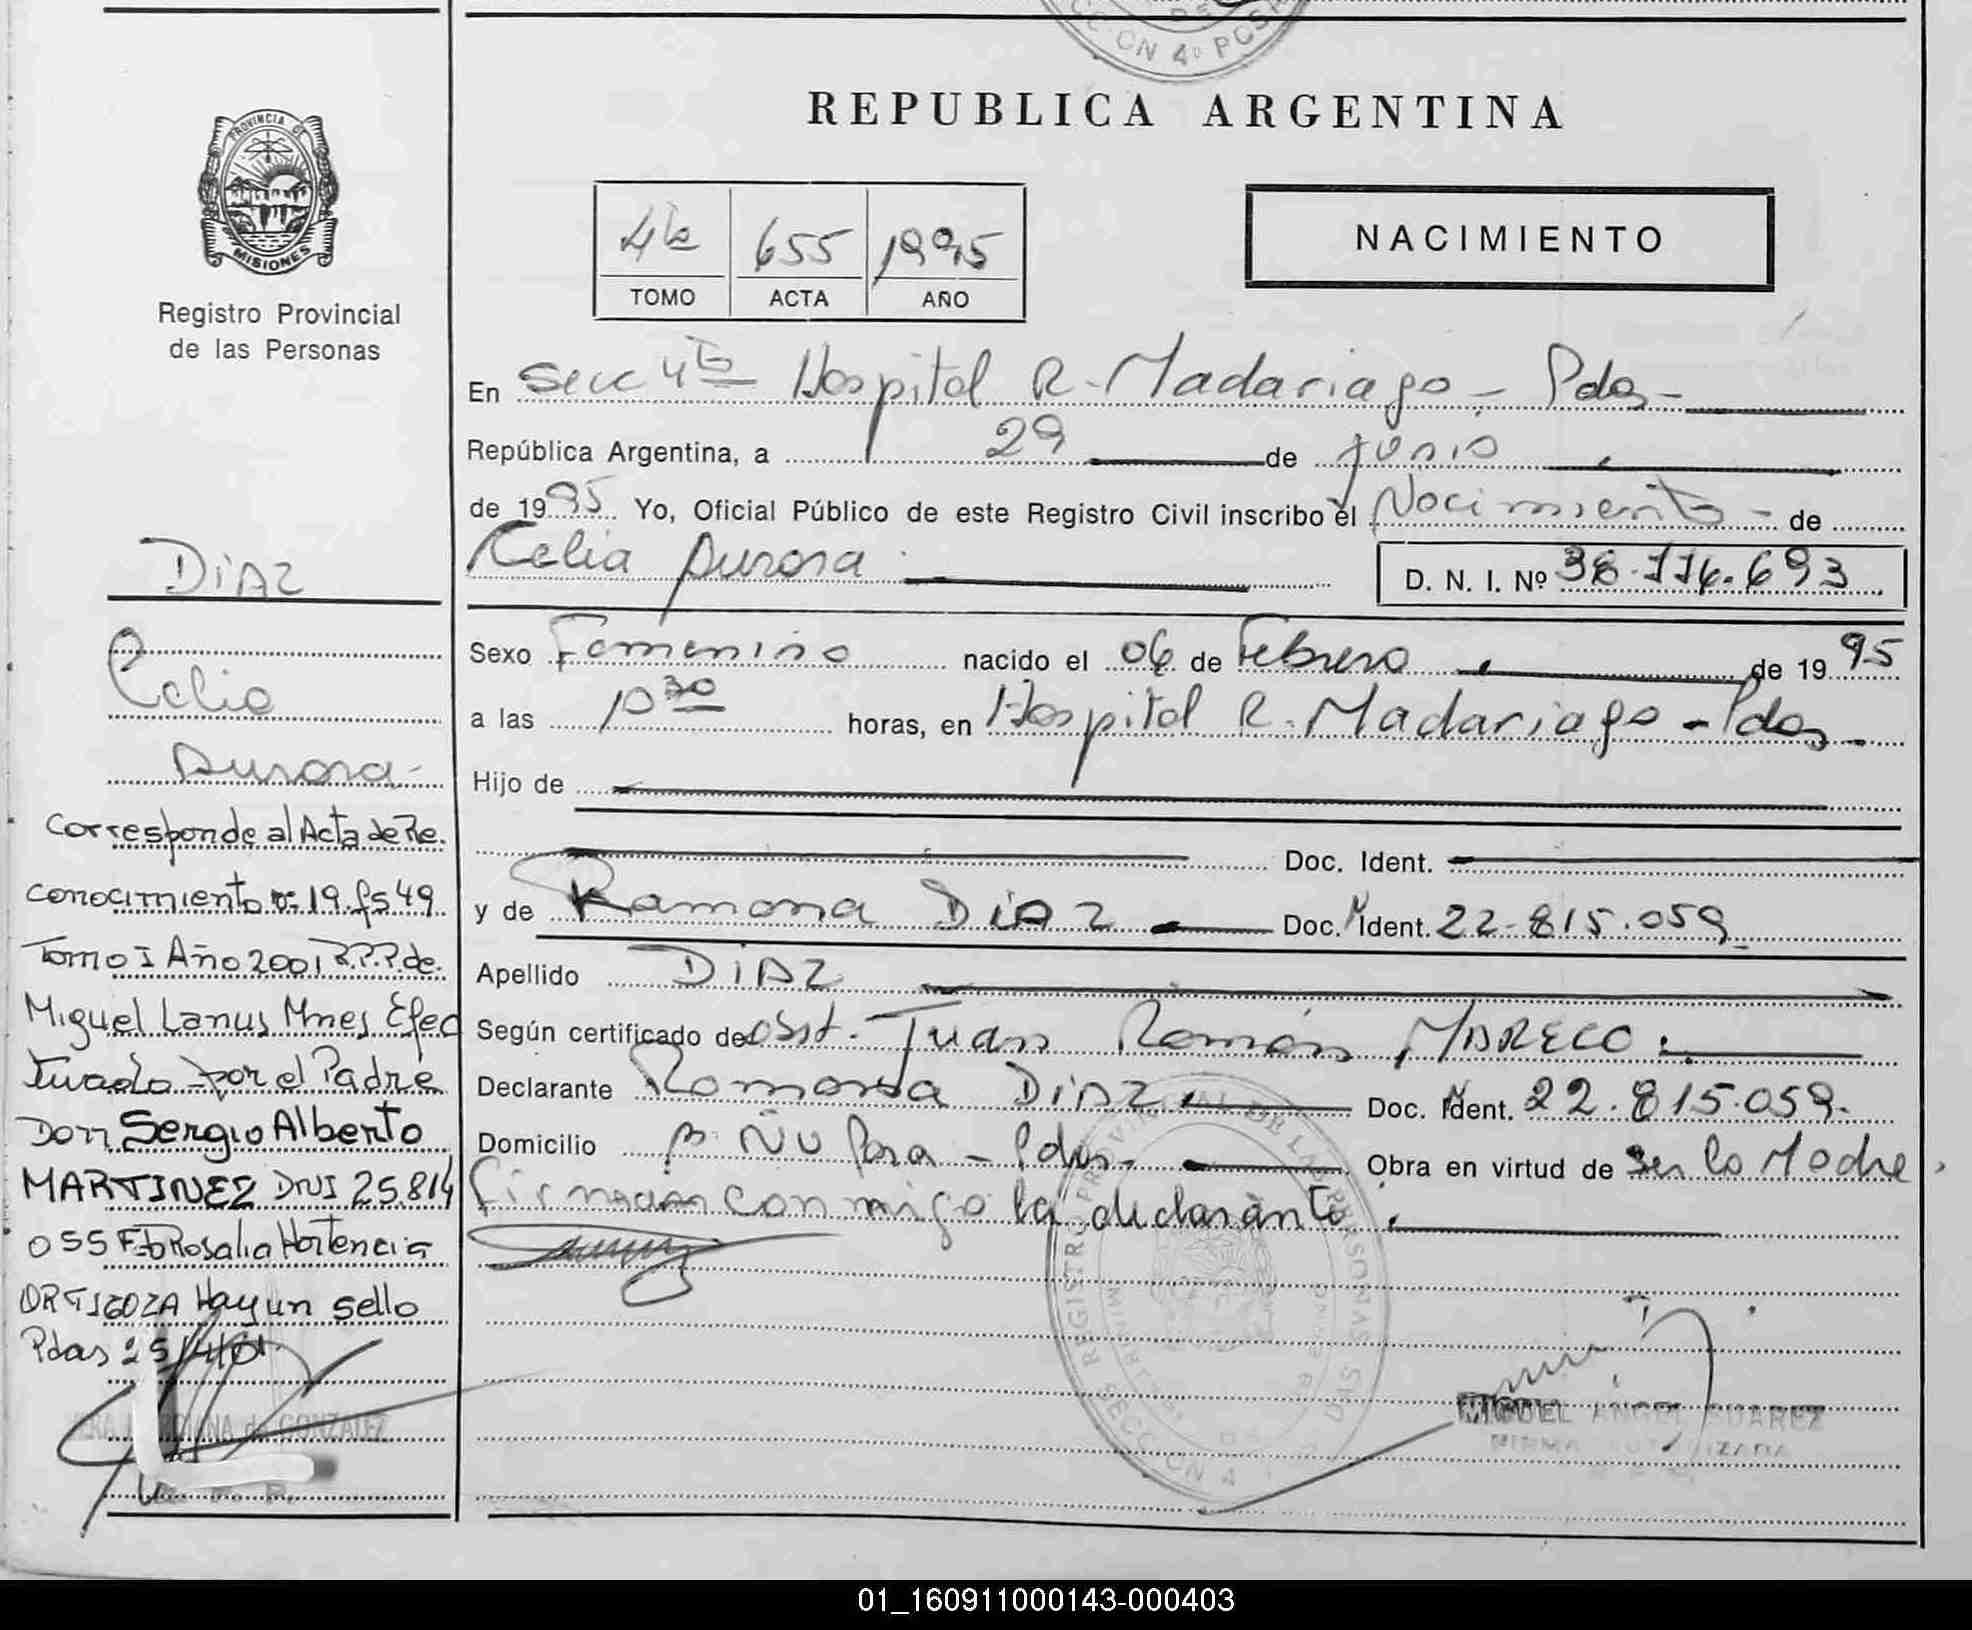 CC·ON 4º POS
REPUBLICA ARGENTINA
PROVINCIA DE
MISIONES
Registro Provincial
de las Personas
4to 655 1995
TOMO ACTA AÑO
NACIMIENTO
En Secc 4ta Hospital R. Madariaga - Pdas -
República Argentina, a 29 de junio
de 1995 Yo, Oficial Público de este Registro Civil inscribo el Nacimiento - de
Celia Aurora
D. N. I. Nº 38.774.693
Sexo Femenino nacido el 06 de Febrero de 1995
a las 10 30 horas, en Hospital R. Madariaga - Pdas -
Hijo de
Doc. Ident.
y de Ramona DiAZ Doc. Ident. 22.815.059
Apellido DiAZ
Según certificado de obst. Juan Ramón MARECO.
Declarante Ramona DiAZ Doc. Ident. 22.815.059.
Domicilio Bº ÑU Pora - Pdas - Obra en virtud de Ser la Madre.
Firman conmigo la declarante.
REGISTRO PROVINCIAL DE LAS PERSONAS
SECCION 4
MIGUEL ANGEL SUAREZ
FIRMA AUTORIZADA
DiAZ
Celia
Aurora-
Corresponde al Acta de Re.
conocimiento nº 19. fs 49
Tomo I Año 2001 R.P.P. de.
Miguel Lanus Mnes Efec
tuado por el Padre
Don Sergio Alberto
MARTINEZ DNI 25.814
055 Fdo Rosalia Hortencia
ORTIGOZA Hay un sello
Pdas 25/4/01
de GONZALEZ
01_160911000143-000403